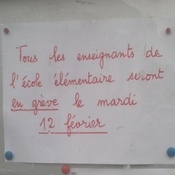 Tous les enseignants de
l'école élémentaire seront
en grève le mardi
12 février